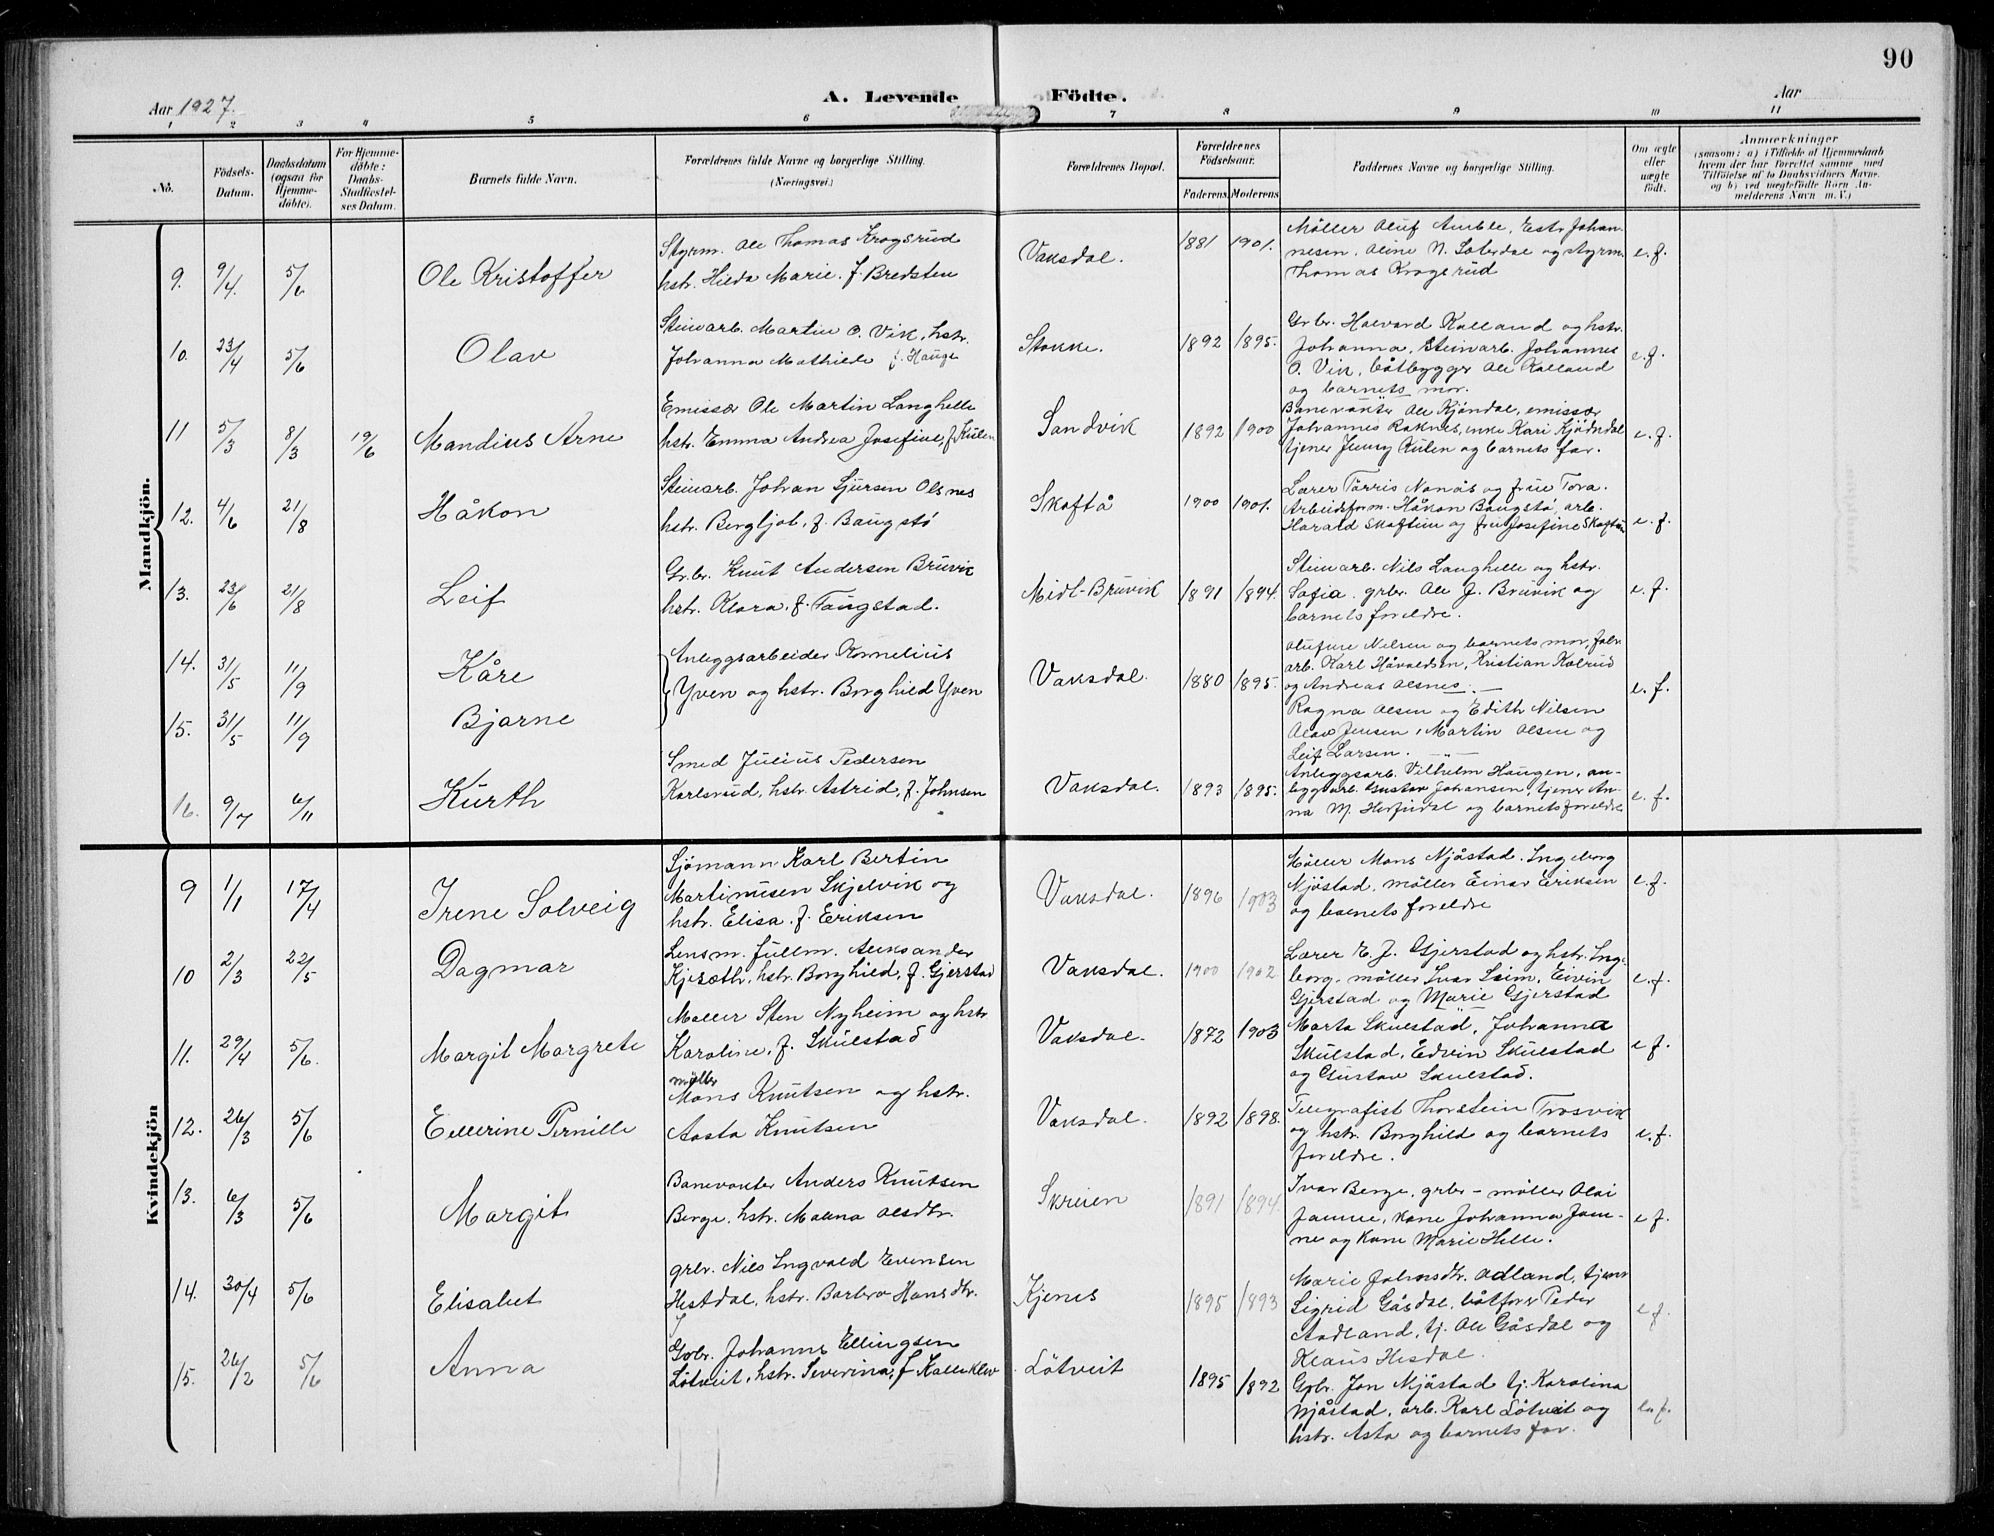 90
Aar 1927.
A. Levende Födte.
Aar
1 2 3 4 5 6 7 8 9 10 11
No.
Födsels-Datum.
Daabsdatum (ogsaa for Hjemme-döbte).
For Hjemme-döbte: Daabs-Stadfæstel-ses Datum.
Barnets fulde Navn.
Forældrenes fulde Navne og borgerlige Stilling. (Næringsvei.)
Forældrenes Bopæl.
Forældrenes Födselsaar.
Faderens Moderens
Faddernes Navne og borgerlige Stilling.
Om ægte eller uægte födt.
Anmærkninger
(saasom: a) i Tilfælde af Hjemmedaab hvem der har forrettet samme med Tilföielse af to Daabsvidners Navne. og b) ved uægtefödte Börn Anmelderens Navn m. V.)
Mandkjön.
9. 9/4. 5/6 Ole Kristoffer
Styrm. Ole Thomas Krogsrud
hstr. Hilda Marie. f. Bredsten
Vaksdal. 1881 1901.
Möller Oluf Amble, Estr. Johan-
nesen, Aline N. Soterdal og styrm.
Thomas Krogsrud
e. f.
10. 23/4 5/6 Olav
Steinarb. Martin O. Vik, hstr.
Johanna Mathilde f. Hauge
Stokke. 1892 1895.
Gr.br. Halvard Kalland og hstr.
Johanna, Steinarb. Johannes
O. Vik, båtbygger Ole Kalland
og barnets mor.
e. f.
11 5/3 8/3 19/6 Mandius Arne
Emissær Ole Martin Langhelle
hstr. Emma Andrea Josefine, f. Kulen
Sandvik 1892 1900
Banevokter Ole Kjöndal, emissær
Johannes Raknes, enke Kari Kjöndal
tjener Jenny Kulen og barnets far.
e. f.
12. 4/6 21/8 Håkon
Steinarb. Johan Sjursen Olsnes
hstr. Bergljot, f. Baugstö
Skaftå 1900 1901.
Lærer Torris Nanås og frue Tora.
Arbeidsform. Håkon Baugstö, arb.
Harald Skaftun og fru Josefine Skaftun
e. f.
13. 23/6 21/8 Leif
Gr.br. Knut Andersen Bruvik
hstr. Klara, f. Taugstad.
Midt-Bruvik 1891 1894.
Steinarb. Nils Langhelle og hstr.
Sofia. grbr. Ole J. Bruvik og
barnets foreldre.
e. f.
14. 31/5 11/9 Kåre
Anleggsarbeider Kornelius
Yven og hstr. Borghild Yven
Vaksdal. 1880 1895.
Olufine Nilsen og barnets mor, fabr.
arb. Karl Håvaldsen, Kristian Kolrud
og Andreas Olsnes.
e. f.
15. 31/5 11/9 Bjarne
Ragna Olsen og Edith Nilsen
Olav Jensen, Martin Olsen og
Leif Larsen.
16. 9/7 6/11 Kurth
Smed Julius Pedersen
Karlsrud, hstr. Astrid, f. Johnsen
Vaksdal. 1893 1895.
Anleggsarb. Vilhelm Haugen, an-
leggsarb. Gustav Johansen, tjener An-
na M. Herfindal og barnets foreldre
e. f.
Kvindekjön
9 1/1 17/4 Irene Solveig
Sjömann Karl Bertin
Martinusen Skjelvik og
hstr. Elisa. f. Eriksen
Vaksdal. 1896 1903
Möller Mons Njåstad. Ingeborg
Njåstad, möller Einar Eriksen
og barnets foreldre
e. f.
10 2/3 22/5 Dagmar
Lensm. fullm. Aleksander
Kjosoth, hstr. Borghild, f. Gjerstad
Vaksdal. 1900 1902
Lærer E. J. Gjerstad og hstr. Inge-
borg. möller Ivar Seim, Eivin
Gjerstad og Marie Gjerstad
e. f.
11. 29/4 5/6. Margit Margrete
Möller Sten Nyheim og hstr
Karoline, f. Skulestad
Vaksdal. 1872 1903
Marta Skulestad, Johanna
Skulestad, Edvin Skulestad
og Gustav Skulestad.
e. f.
12. 26/3 5/6 Ellerine Pernille
möller
Mons Knutsen og hstr.
Aasta Knutsen
Vaksdal. 1892 1898.
Telegrafist Thorstein Trosvik
og hstr. Borghild og barnets
foreldre.
e. f.
13. 6/3 5/6 Margit
Banevokter Anders Knutsen
Berge, hstr. Malena Olsdtr.
Skreien 1891 1894.
Ivar Berge, grbr – möller Olai
Jamne, kone Johanna Jam-
ne og kone Marie Helle.
e f.
14. 30/4 5/6 Elisabet
grbr. Nils Ingvald Evensen
Hestdal, hstr. Barbro Hansdtr.
Kjenes 1895 1893
Marie Johnsdtr. Adland, tjener
Sigrid Gåsdal, båtförer Peder
Aadland, tj. Ole Gåsdal og
Klaus Hesdal.
e f.
15. 26/2 5/6 Anna
Grbr. Johannes Ellingsen
Lötveit, hstr. Severina, f Kallekleiv
Lötveit 1895 1892
Grbr. Jon Njåstad tj. Karolina
Njåstad, arb. Karl Lötveit og
hstr. Asta og barnets far.
e. f.